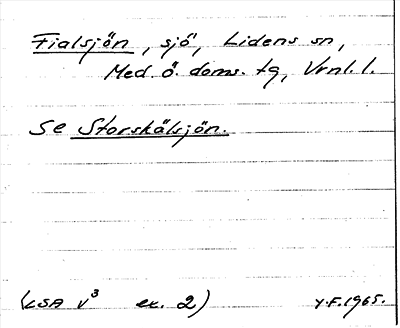 Fialsjön, sjö, Lidens sn,
Med. ö. doms. tg, Vrnl. l.
Se Storskälsjön.
(LSA V³ ex. 2) Y.F. 1965.